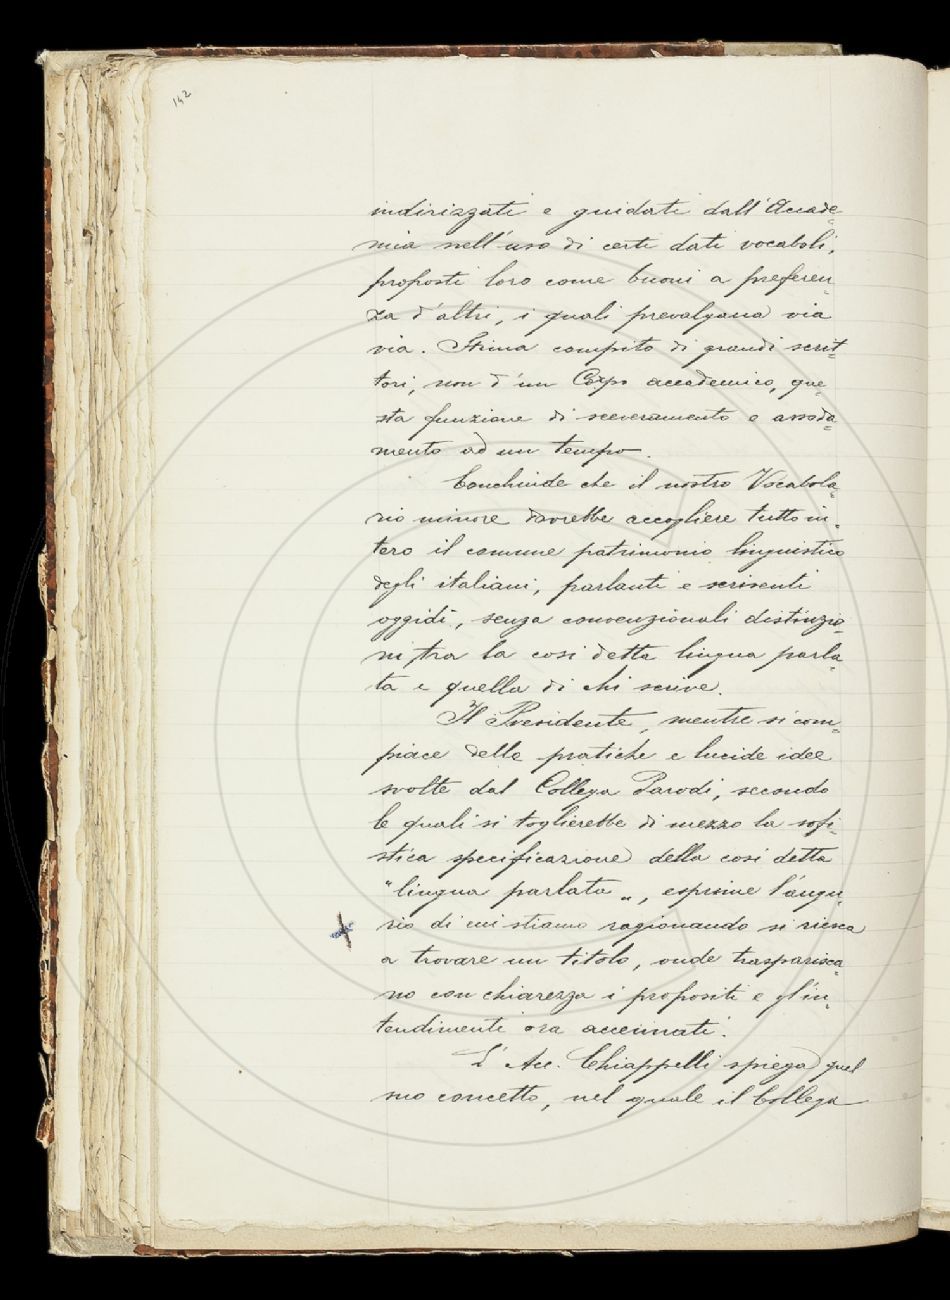 142
indirizzati e guidati dall'Accade=
mia nell'uso di certi dati vocaboli,
proposti loro come buoni a preferen=
za d'altri, i quali prevalgano via
via. Stima compito di grandi scrit=
tori, non d'un Corpo accademico, que=
sta funzione di sceveramento e assoda=
mento ad un tempo.
Conchiude che il nostro Vocabola=
rio minore dovrebbe accogliere tutto in=
tero il comune patrimonio linguistico
degli italiani, parlanti e scriventi
oggidì, senza convenzionali distinzio=
ni tra la così detta lingua parla=
ta e quella di chi scrive.
Il Presidente, mentre si com=
piace delle pratiche e lucide idee
svolte dal Collega Parodi, secondo
le quali si toglierebbe di mezzo la sofi=
stica specificazione della così detta
"lingua parlata", esprime l'augu=
rio di cui stiamo ragionando si riesca
a trovare un titolo, onde trasparisca=
no con chiarezza i propositi e gl'in=
tendimenti ora accennati.
L'Acc. Chiappelli spiega quel
suo concetto, nel quale il Collega